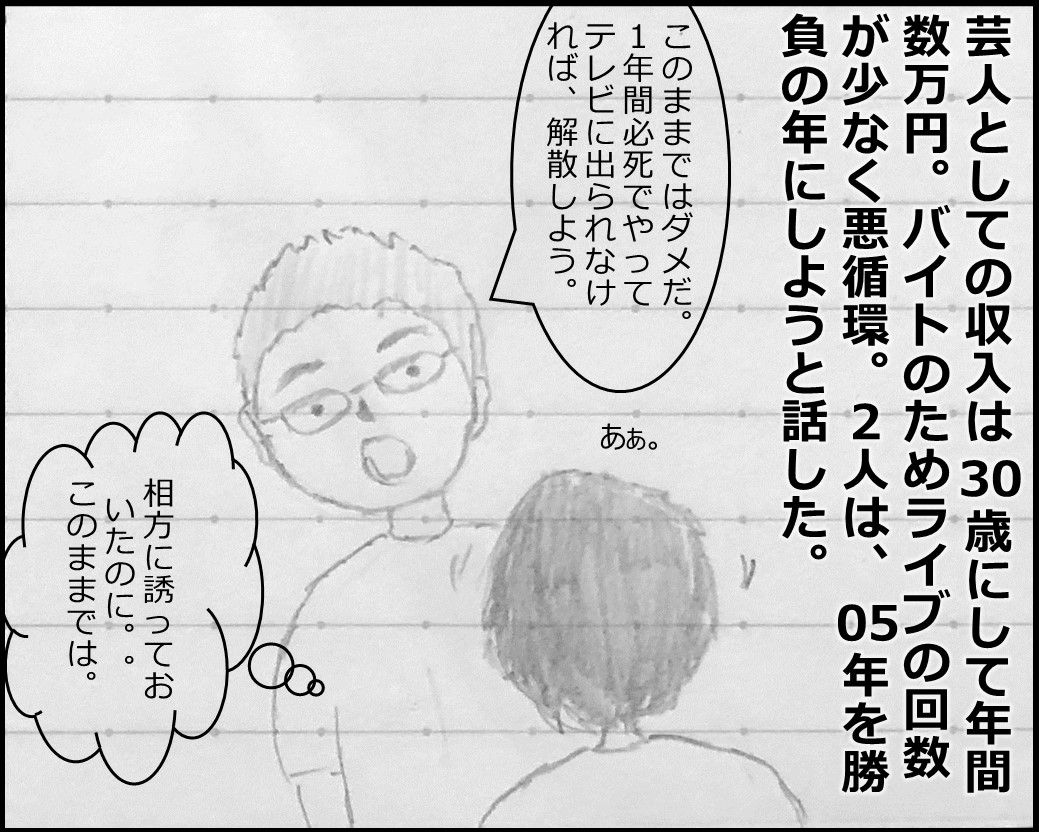 芸人としての収入は30歳にして年間
数万円。バイトのためライブの回数
が少なく悪循環。2人は、05年を勝
負の年にしようと話した。
このままではダメだ。
1年間必死でやって
テレビに出られなけ
れば、解散しよう。
あぁ。
相方に誘ってお
いたのに。。
このままでは。